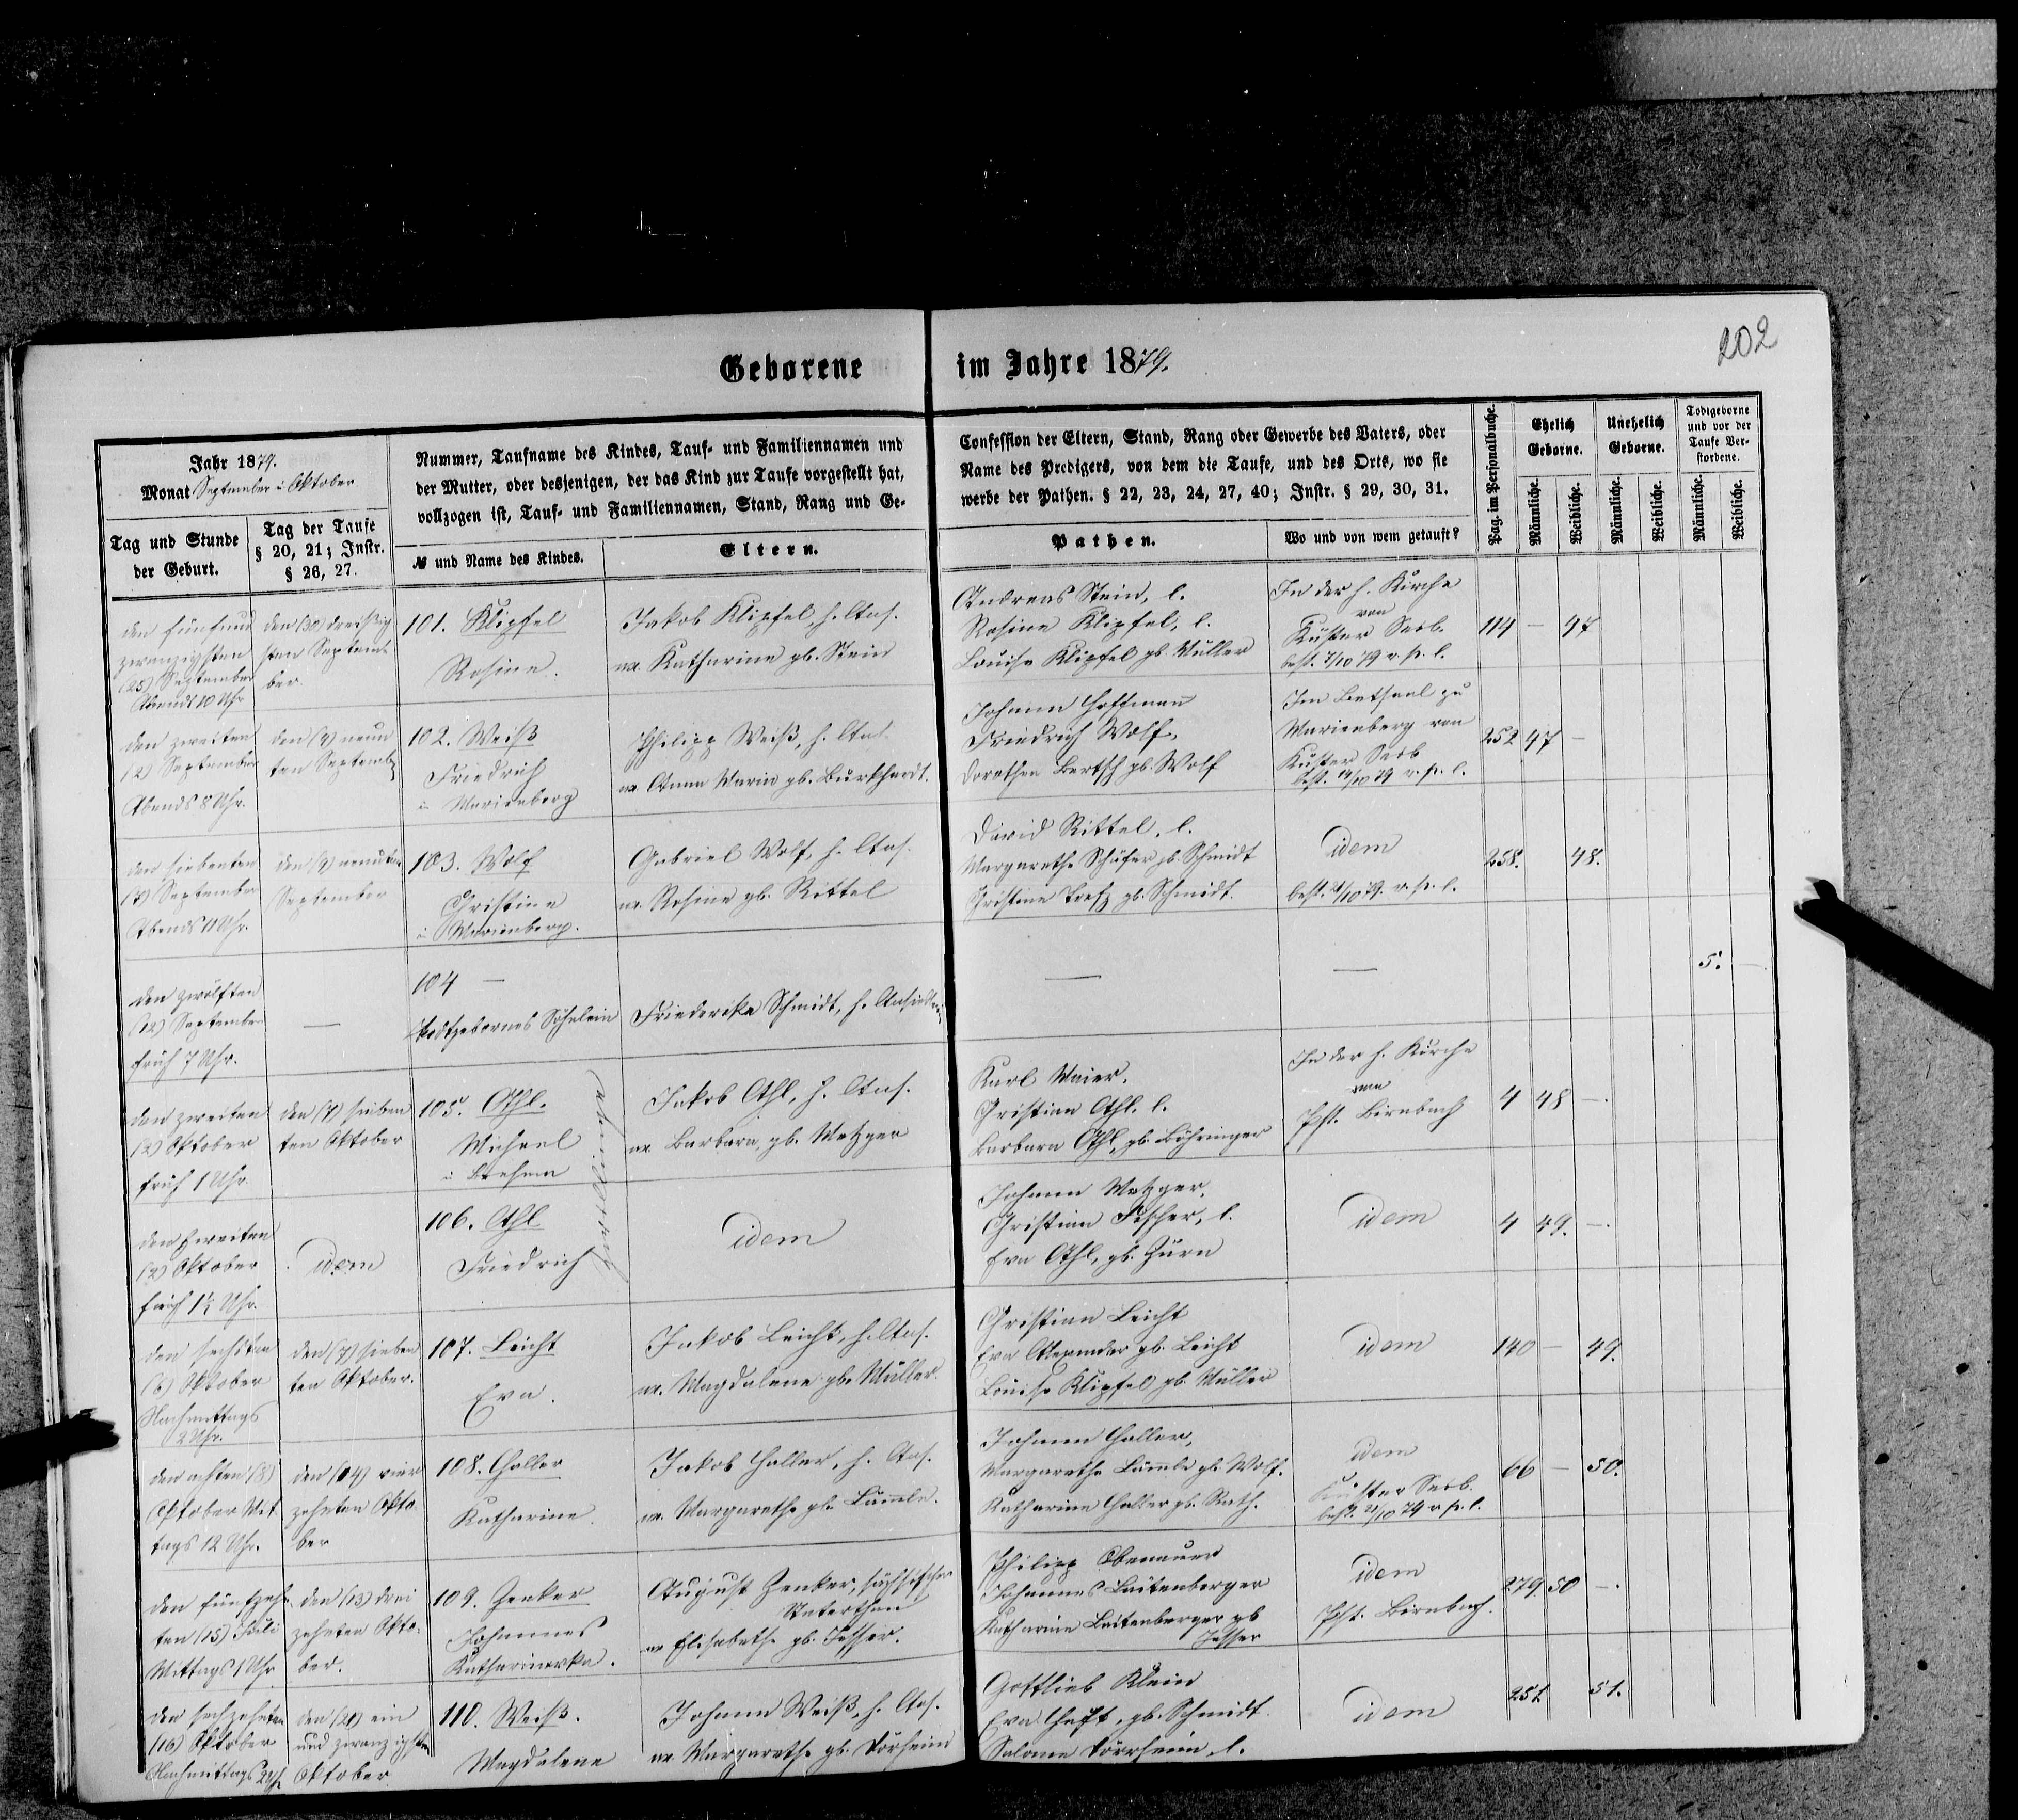 202
Geborene im Jahre 1879.
Jahr 1879.
Monat September u. Oktober
Tag und Stunde der Geburt.
Tag der Taufe § 20, 21; Instr. § 26, 27.
Nummer, Taufname des Kindes, Tauf- und Familiennamen und
der Mutter, oder desjenigen, der das Kind zur Taufe vorgestellt hat,
vollzogen ist, Tauf- und Familiennamen, Stand, Rang und Ge-
№ und Name des Kindes.
Eltern.
Confession der Eltern, Stand, Rang oder Gewerbe des Vaters, oder
Name des Predigers, von dem die Taufe, und des Orts, wo sie
werbe der Pathen. § 22, 23, 24, 27, 40; Instr. § 29, 30, 31.
Pathen.
Wo und von wem getauft?
Pag. im Personalbuche.
Ehelich Geborne.
Unehelich Geborne.
Todtgeborne und vor der Taufe Verstorbene.
Männliche.
Weibliche.
Männliche.
Weibliche.
Männliche.
Weibliche.
den fünfund
zwanzigsten
(25) September
Abends 10 Uhr
den (30) dreißig
sten Septem-
ber.
101. Klipfel
Rosine.
Jakob Klipfel, h. Ans.
ux. Katharine gb. Stein
Andreas Stein, l.
Rosine Klipfel, l.
Louise Klipfel gb. Müller
In der h. Kirche
von
Küster Serb.
best. 7/10 79 v. p. l.
114 — 47
den zweiten
(2) September
Abends 8 Uhr.
den (9) neun
ten September
102. Weiß
Friedrich
i. Marienberg
Philipp Weiß, h. Ans.
ux. Anna Maria gb. Burkhardt.
Johann Hoffmann
Friedrich Wolf,
Dorothea Bertsch gb. Wolf
Im Betsaal zu
Marienberg von
Küster Serb
best. 14/10 79 v. p. l.
252 47 —
den siebenten
(7) September
Abends 11 Uhr.
den (9) neunten
September
103. Wolf
Christine
i. Marienberg.
Gabriel Wolf, h. Ans.
ux. Rosine gb. Rittel
David Rittel, l.
Margarethe Schäfer gb. Schmidt
Christine Trefz gb. Schmidt.
idem
best. 21/10 79. v. p. l.
258. 48.
den zwölften
(12) September
früh 7 Uhr.
—
104 —
todtgebornes Söhnlein
Friederika Schmidt, h.
—
—
5. —
den zweiten
(2) Oktober
früh 1 Uhr.
den (7) sieben
ten Oktober
105. Ohl.
Michael
Jakob Ohl, h. Ans.
ux. Barbara, gb. Metzger
Karl Maier,
Christian Ohl, l.
Barbara Ohl, gb. Böhringer
In der h. Kirche
von
Pst. Birnbach
4 48 —.
den zweiten
(2) Oktober
früh 1½ Uhr.
idem
106. Ohl
Friedrich
idem
Johann Metzger,
Christian Fischer, l.
Eva Ohl, gb. Zürn
idem
4 49. —.
den sechsten
(6) Oktober
Nachmittags
2 Uhr.
den (7) sieben
ten Oktober.
107. Leicht
Eva.
Jakob Leicht, h. Ans.
ux. Magdalene gb. Müller.
Christian Leicht
Eva Alexander gb. Leicht
Louise Klipfel gb. Müller
idem
140 — 49.
den achten (8)
Oktober Mit
tags 12 Uhr.
den (14) vier
zehnten Okto-
ber
108. Haller
Katharine.
Jakob Haller, h. Ans.
ux. Margarethe gb. Lämle.
Johann Haller,
Margarethe Lämle gb. Wolf.
Katharine Haller gb. Rath.
idem
Küster Serb.
best. 21/10 79 v. p. l.
66 — 50.
den fünfzehn
ten (15) Juli
Mittags 1 Uhr
den (13) drei
zehnten Okto-
ber.
109. Zenker
Johannes
Katharinovka.
August Zenker, sächsischer
Unterthan
ux Elisabeth gb. Jesser.
Philipp Obenauer
Johannes Lautenberger
Katharine Lautenberger gb
Jesser
idem
Pst. Birnbach.
279. 50 —.
den sechzehnten
(16) Oktober
Nachmittags 2 Uhr
den (21) ein
und zwanzigsten
Oktober
110. Weiß.
Magdalene
Johann Weiß, h. Ans.
ux. Margarethe gb. Dörheim
Gottlieb Klein
Eva Haft, gb. Schmidt.
Salome Dörrheim, l.
idem
251. 51.